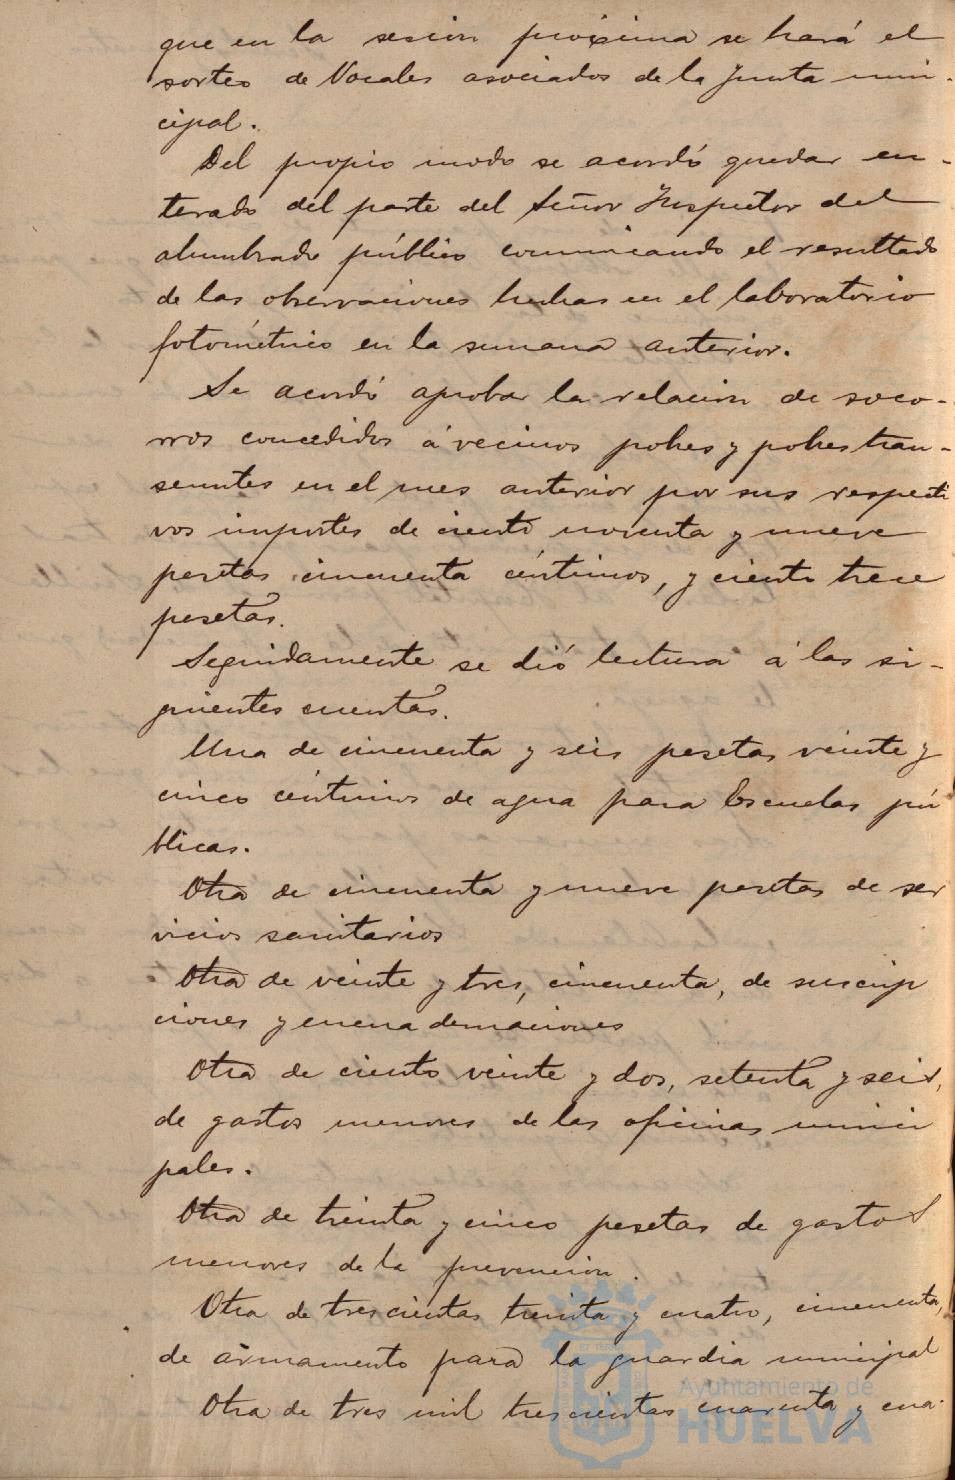 que en la sesion proxima se hará el
sorteo de Vocales asociados de la Junta muni-
cipal.
Del propio modo se acordó quedar en-
terado del parte del Señor Inspector del
alumbrado público comunicando el resultado
de las observaciones hechas en el laboratorio
fotométrico en la semana anterior.
Se acordó aprobar la relacion de soco-
rros concedidos á vecinos pobres y pobres tran-
seuntes en el mes anterior por sus respecti
vos importes de ciento noventa y nueve
pesetas cincuenta céntimos, y ciento trece
pesetas.
Seguidamente se dió lectura á las si-
guientes cuentas.
Una de cincuenta y seis pesetas veinte y
cinco céntimos de agua para Escuelas pú
blicas.
Otra de cincuenta y nueve pesetas de ser
vicios sanitarios
Otra de veinte y tres, cincuenta, de suscrip
ciones y encuadernaciones
Otra de ciento veinte y dos, setenta y seis,
de gastos menores de las oficinas munici
pales.
Otra de treinta y cinco pesetas de gastos
menores de la prevencion.
Otra de trescientas treinta y cuatro, cincuenta,
de armamento para la guardia municipal
Otra de tres mil trescientas cuarenta y cua-
Ayuntamiento de
HUELVA